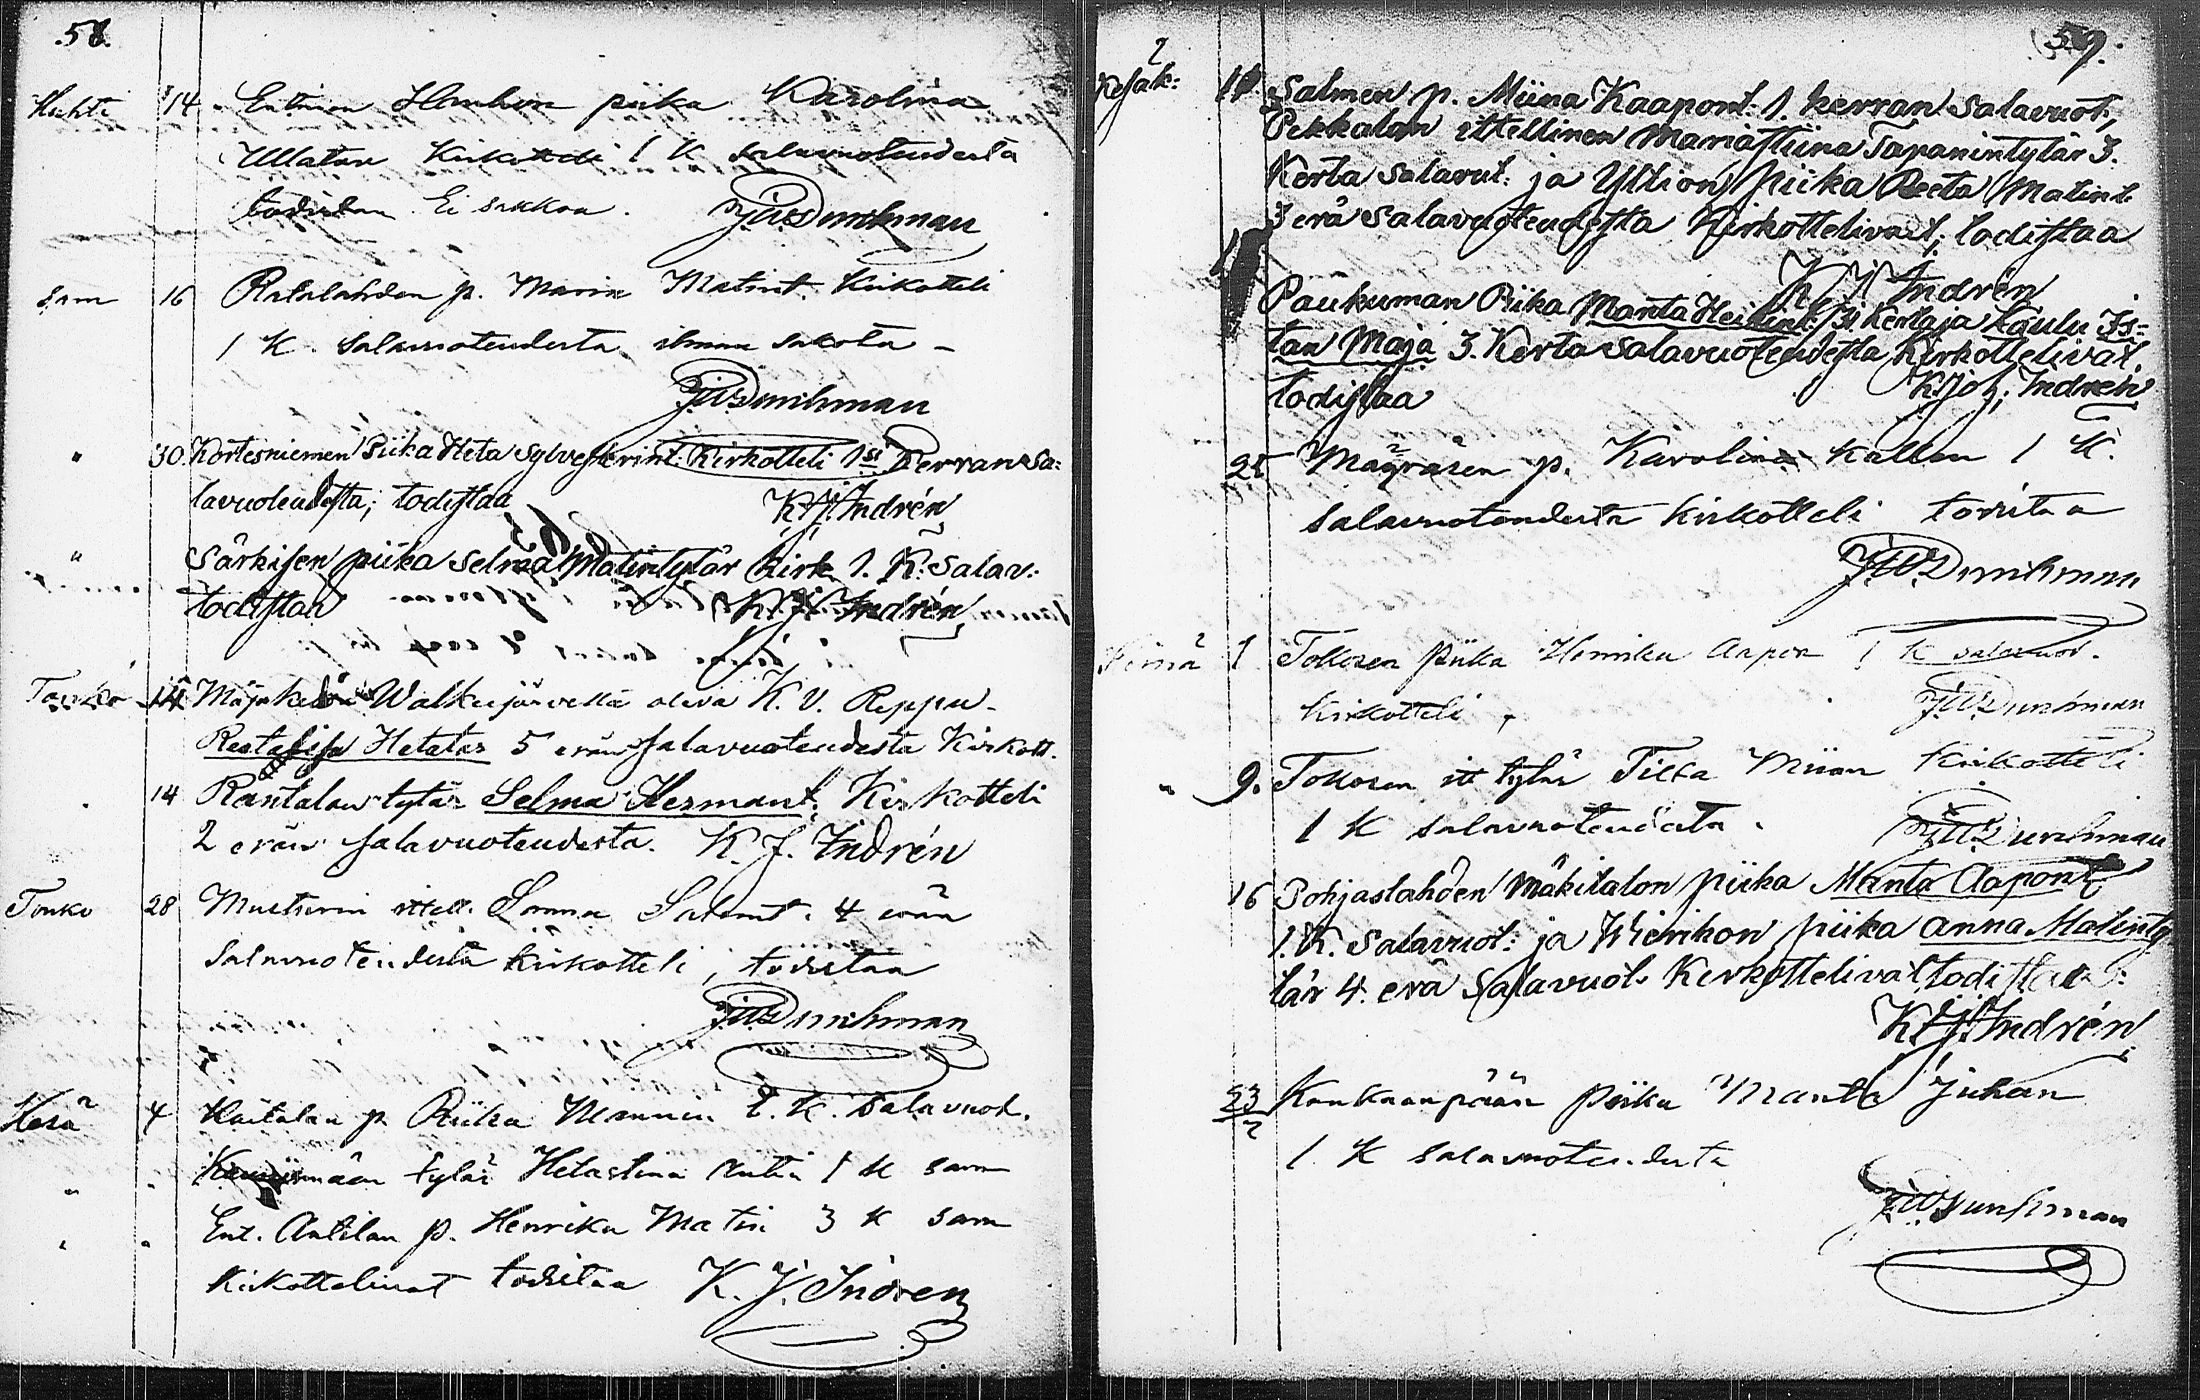 58.
Huhti 14 piika Karolina
Ullatar Kirkotteli 1 K salavuoteudesta
todistan Ei sakkoa. J.W. Durchman
sam 16 p. Maria Matint. Kirkotteli
1 K. salavuoteudesta ilman sakota –
J.W. Durchman
" 30. Kortesniemen Piika Heta Sylvesterint: Kirkotteli 1si Kerran Sa:
lavuoteudesta; todistaa K. J. Indrén
" Särkisen piika Selma Matintytär Kirk. 1. K: Salav:
todistaa K. J. Indrén
Touko 14 Walkeijärvellä oleva K. V. Reppu-
Hetatar 5 erän salavuoteudesta Kirkott.
14 Rantalan tytär Selma Hermant. Kirkotteli
2 erän salavuoteudesta. K. J. Indrén
Touko 28 ittell. 4 erän
salavuoteudesta kirkotteli, todistaa
J.W. Durchman
Kesä 4 p. Riika K. salavuot.
" " tytär Hetastina 1 K sam
" " Ent. Antilan p. Henrika Matin 3 K sam
Kirkottelivat todistaa K. J. Indren
59.
Kesäk: 11 Salmen p. Miina Kaapont: 1. kerran Salavuot;
Pekkalan ittellinen Mariastiina Tapanintytär 3.
Kerta Salavut: ja Yltiön piika Reeta Matint.
3 erä Salavuoteudesta Kirkottelivat; todistaa
K J Indrén
Paukuman Piika Manta Heikint: 3 Kerta ja Kaulu Is=
tan Maja 3. Kerta Salavuoteudesta Kirkottelivat,
todistaa K. Joh. Indrén
25 Mäyräsen p. Karolina Kallen 1 K.
salavuoteudesta kirkotteli todistaa
J.W. Durchman
Heinä 1 Tokosen Piika Henrika Aapon 1 K salavuot.
Kirkotteli, J.W. Durchman
" 9. Tokosen itt tytär Tilta Miian Kirkotteli
1 K salavuoteudesta. J.W. Durchman
16 Pohjaslahden Mäkitalon piika Manta Aapont
1. K. Salavuot: ja Wierikon piika Anna Matinty
tär 4. erä Salavuot. Kirkottelivat todistaa:
K. J. Indrén
23 Kankaanpään Piika Manta Juhan
1. K salavuoteudesta
J.W. Durchman